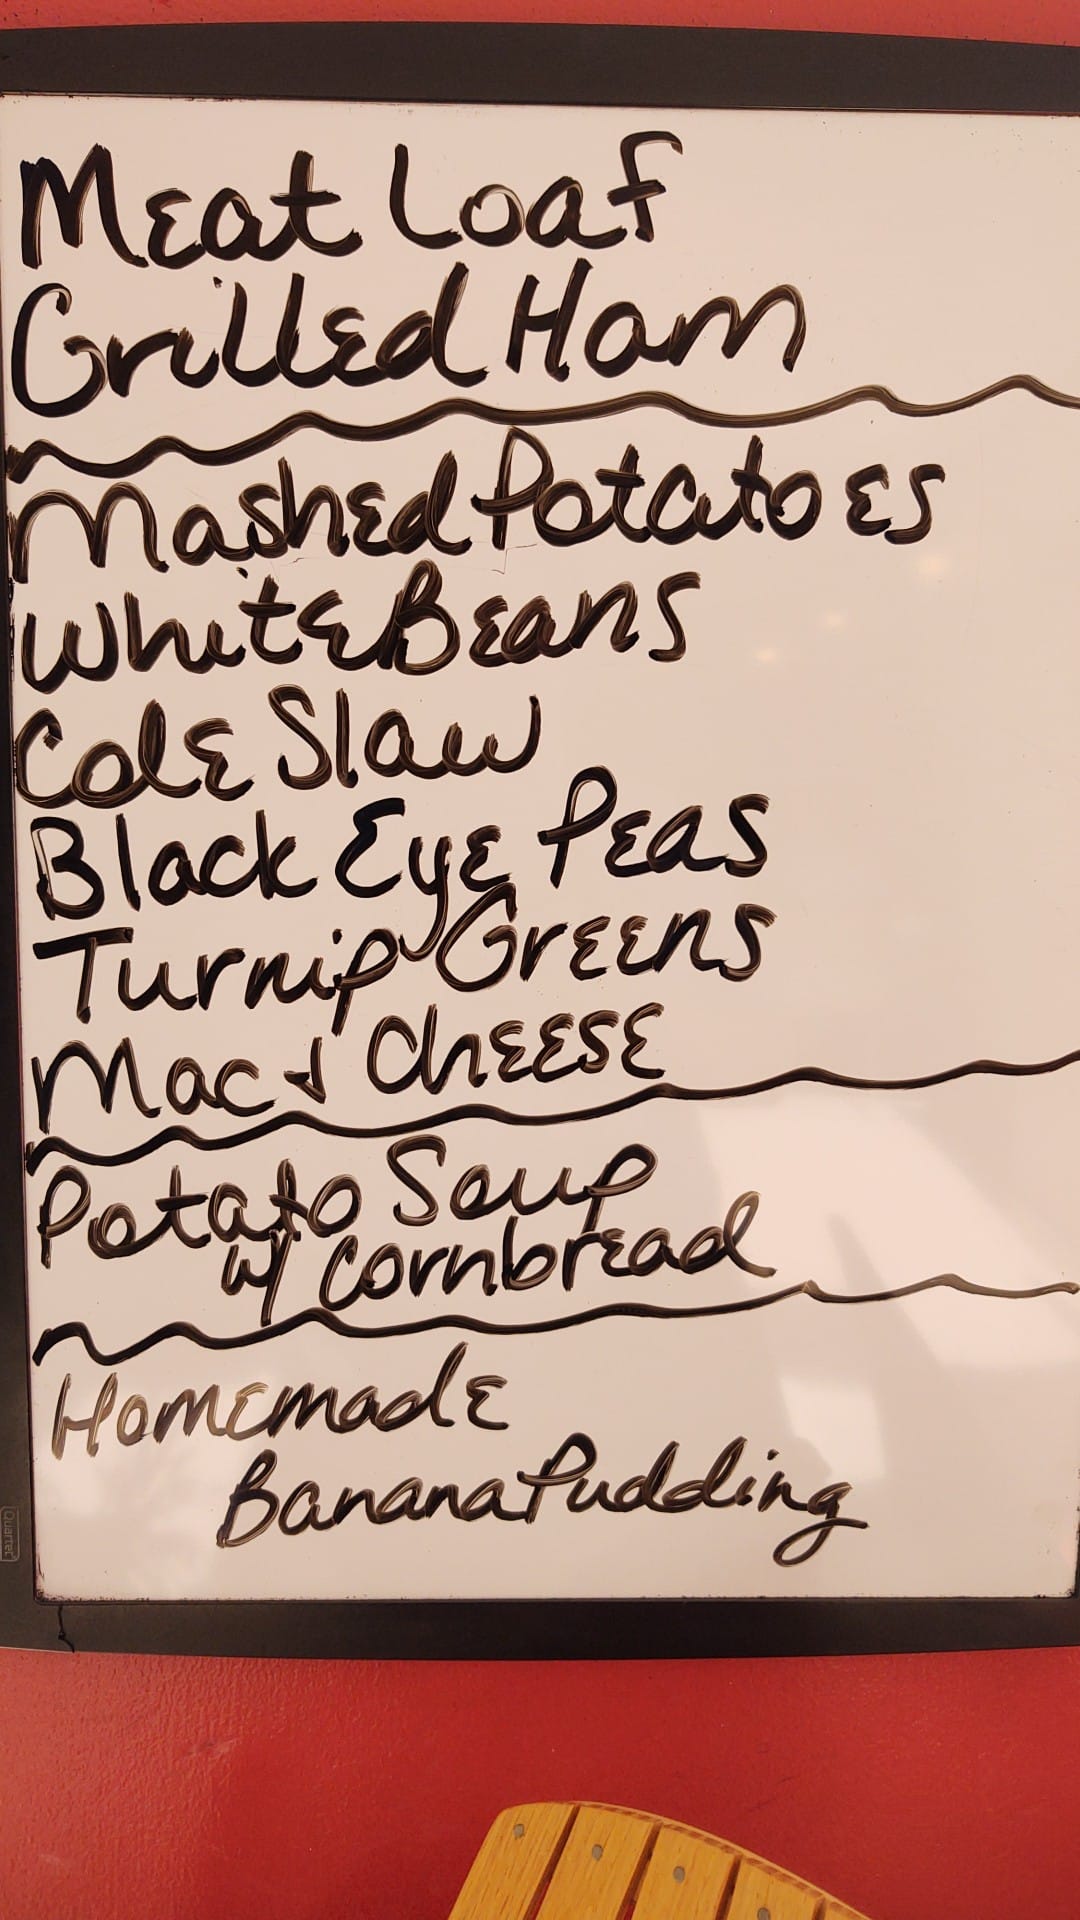 Meat Loaf
Grilled Ham
Mashed Potatoes
White Beans
Cole Slaw
Black Eye Peas
Turnip Greens
Mac & Cheese
Potato Soup
w/ Cornbread
Homemade
Banana Pudding
Quartet